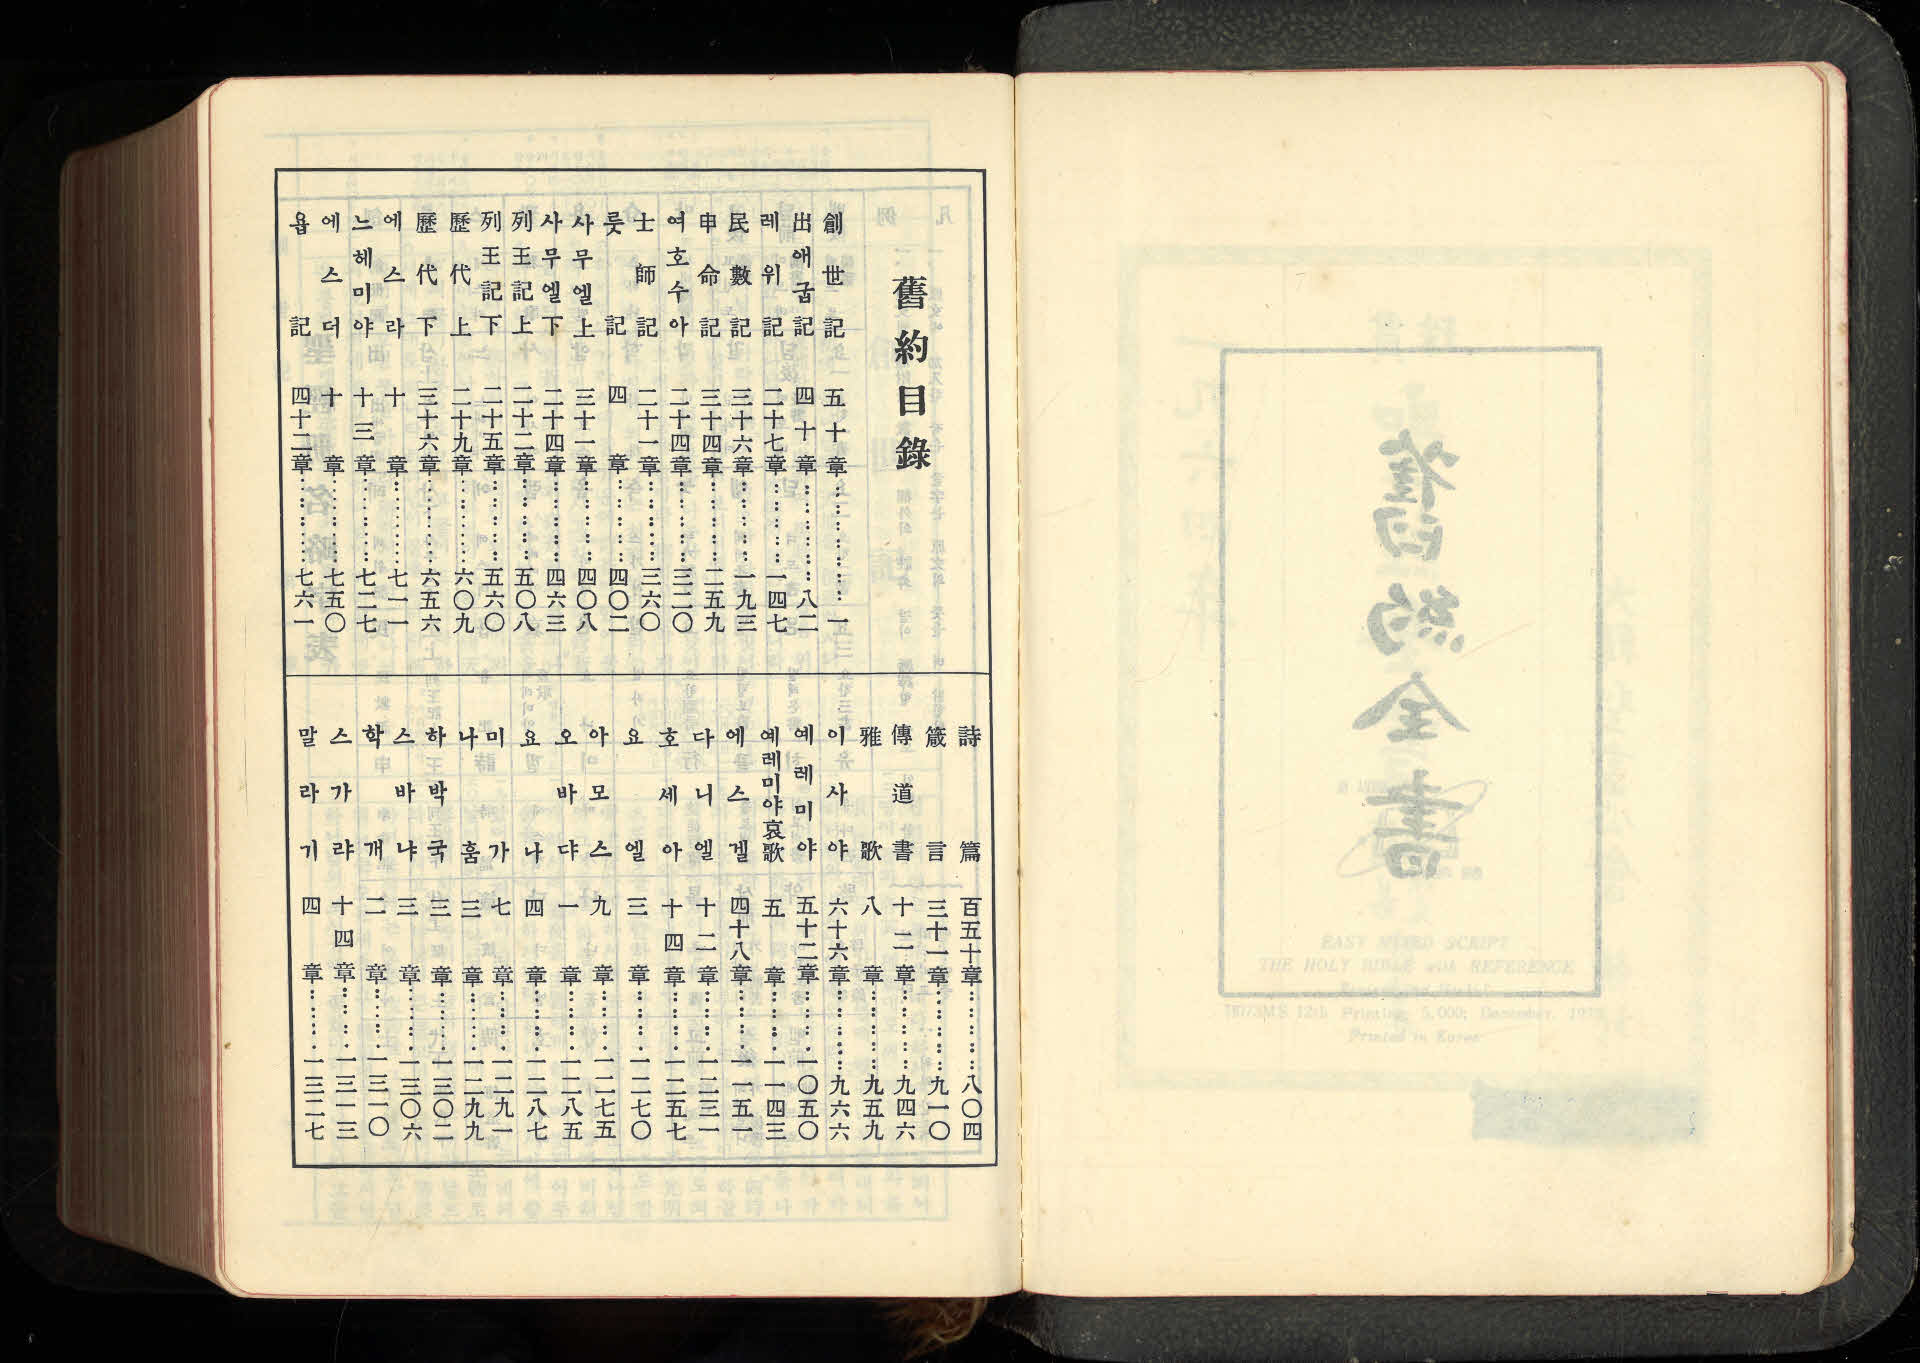 舊約目錄
創世記 五十章…………一
出애굽記 四十章…………八二
레위記 二十七章…………一四七
民數記 三十六章…………一九三
申命記 三十四章…………二五九
여호수아 二十四章…………三二〇
士師記 二十一章…………三六〇
룻記 四章…………四〇二
사무엘上 三十一章…………四〇八
사무엘下 二十四章…………四六三
列王記上 二十二章…………五〇八
列王記下 二十五章…………五六〇
歷代上 二十九章…………六〇九
歷代下 三十六章…………六五六
에스라 十章…………七一一
느헤미야 十三章…………七二七
에스더 十章…………七五〇
욥記 四十二章…………七六一
詩篇 百五十章…………八〇四
箴言 三十一章…………九一〇
傳道書 十二章…………九四六
雅歌 八章…………九五九
이사야 六十六章…………九六六
예레미야 五十二章…………一〇五〇
예레미야哀歌 五章…………一一四三
에스겔 四十八章…………一一五一
다니엘 十二章…………一二三一
호세아 十四章…………一二五七
요엘 三章…………一二七〇
아모스 九章…………一二七五
오바댜 一章…………一二八五
요나 四章…………一二八七
미가 七章…………一二九一
나훔 三章…………一二九九
하박국 三章…………一三〇二
스바냐 三章…………一三〇六
학개 二章…………一三一〇
스가랴 十四章…………一三一三
말라기 四章…………一三二七
舊約全書
EASY MIXED SCRIPT
THE HOLY BIBLE with REFERENCE
Printed in Korea